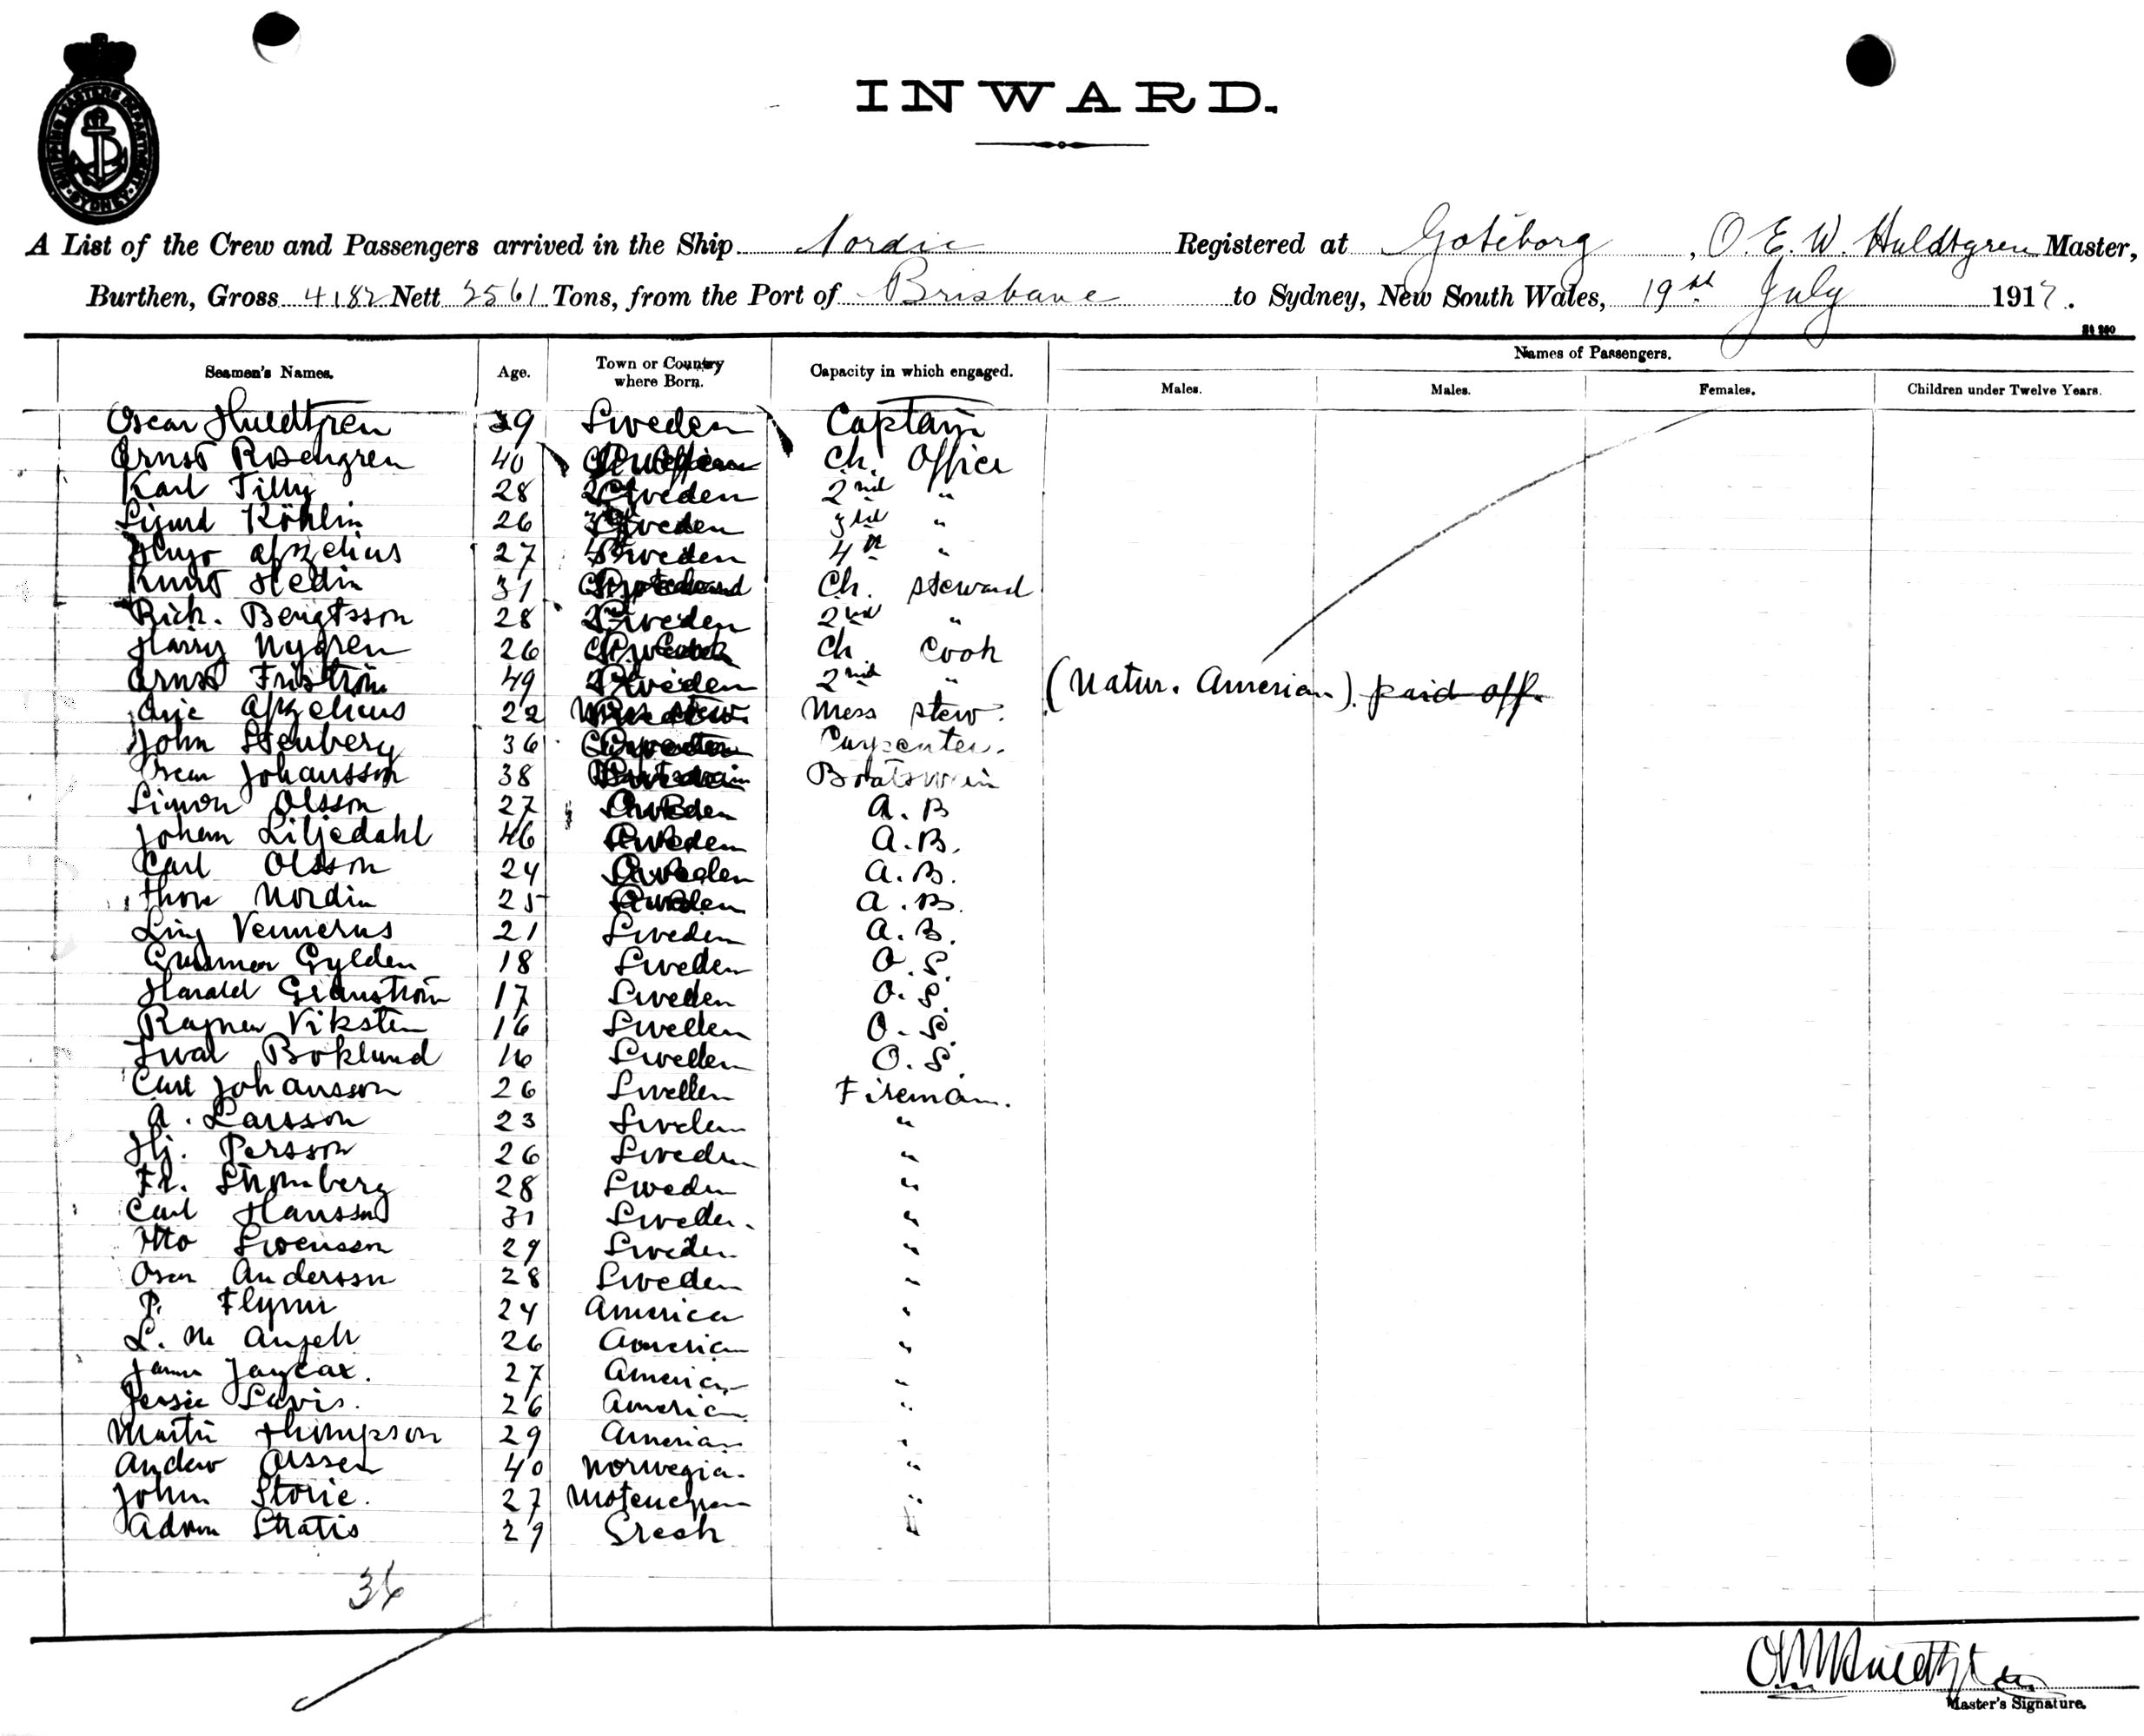 SHIPPING MASTERS DEPARTMENT SYDNEY
INWARD.
A List of the Crew and Passengers arrived in the Ship Nordic Registered at Goteborg, O. E. W. Huldtgren Master,
Burthen, Gross 4182 Nett 2561 Tons, from the Port of Brisbane to Sydney, New South Wales, 19th July 1917.
Names of Passengers.
Seamen's Names. Age. Town or Country where Born. Capacity in which engaged. Males. Males. Females. Children under Twelve Years.
Oscar Huldtgren 39 Sweden Captain
Ernst Rosengren 40 Ch. Officer
Karl Tilly 28 Sweden 2nd "
Sigurd Köhlin 26 Sweden 3rd "
Hugo Afzelius 27 Sweden 4th "
Knut Hedin 31 Ch. Steward
Rich. Bengtsson 28 Sweden 2nd "
Harry Nygren 26 Ch Cook
Ernst Friström 49 Sweden 2nd " (Natur. American). paid off.
Eric Afzelius 22 Mess stew.
John Stenberg 36 Carpenter.
Oscar Johansson 38 Boatswain
Simon Olsson 27 Sweden A. B
Johan Liljedahl 46 Sweden A. B.
Carl Olsson 24 Sweden A. B.
Thore Nordin 25 Sweden A. B.
Ling Vennerus 21 Sweden A. B.
Gunnar Gylden 18 Sweden O. S.
Harald Granström 17 Sweden O. S.
Ragnar Viksten 16 Sweden O. S.
Ivar Boklund 16 Sweden O. S.
Carl Johansson 26 Sweden Fireman.
A. Larsson 23 Sweden "
Hj. Persson 26 Sweden "
Fr. Strömberg 28 Sweden "
Carl Hansson 31 Sweden "
Otto Svensson 29 Sweden "
Oscar Andersson 28 Sweden "
P. Flynn 24 America "
L. M Angell 26 American "
James Jaycax. 27 American "
Jessie Davis. 26 American "
Martin Thompson 29 American "
Andew Olssen 40 Norwegia. "
John Storie. 27 "
Adom Stratis 29 Greek "
36
Master's Signature.